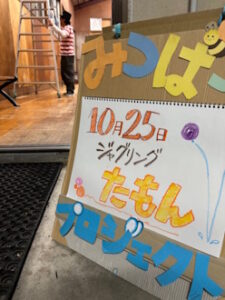 みつばち
10月25日
ジャグリング
たもん
プロジェクト